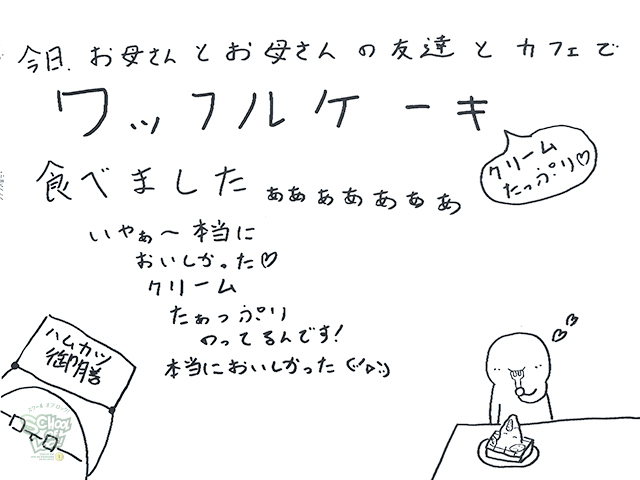 今日、お母さんとお母さんの友達とカフェで
ワッフルケーキ
クリーム
たっぷり♡
食べましたぁぁぁぁぁぁぁ
いやぁ〜本当に
おいしかった♡
クリーム
たぁっぷり
のってるんです!
本当においしかった
ハムカツ
御膳
SCHOOL OF LOCK!